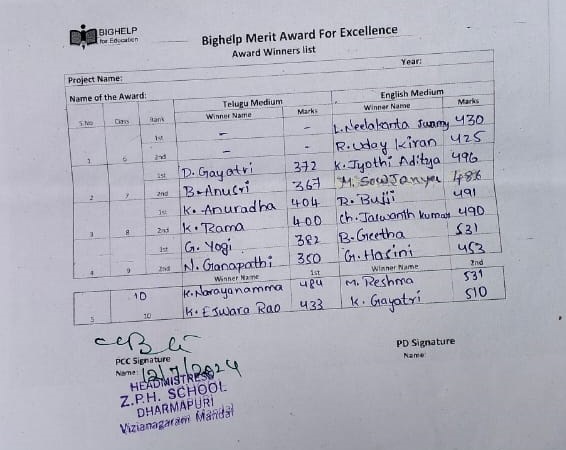 BIGHELP
for Education
Bighelp Merit Award For Excellence
Award Winners list
Project Name: Year:
Name of the Award: Telugu Medium English Medium
S.No Class Rank Winner Name Marks Winner Name Marks
1st - - L. Neelakanta Swamy 430
1 6 2nd - - R. Uday Kiran 425
1st D. Gayatri 372 K. Jyothi Aditya 496
2 7 2nd B. Anusri 367 M. Sowjanya 486
1st K. Anuradha 404 R. Bujji 491
3 8 2nd K. Rama 400 Ch. Jaswanth Kumar 490
1st G. Yogi 382 B. Geetha 531
4 9 2nd N. Ganapathi 350 G. Hasini 453
Winner Name 1st Winner Name 2nd
10 K. Narayanamma 484 M. Reshma 531
5 10 K. Eswara Rao 433 K. Gayatri 510
PCC Signature PD Signature
Name: 12/7/2024 Name:
HEADMISTRESS
Z.P.H. SCHOOL
DHARMAPURI
Vizianagaram Mandal